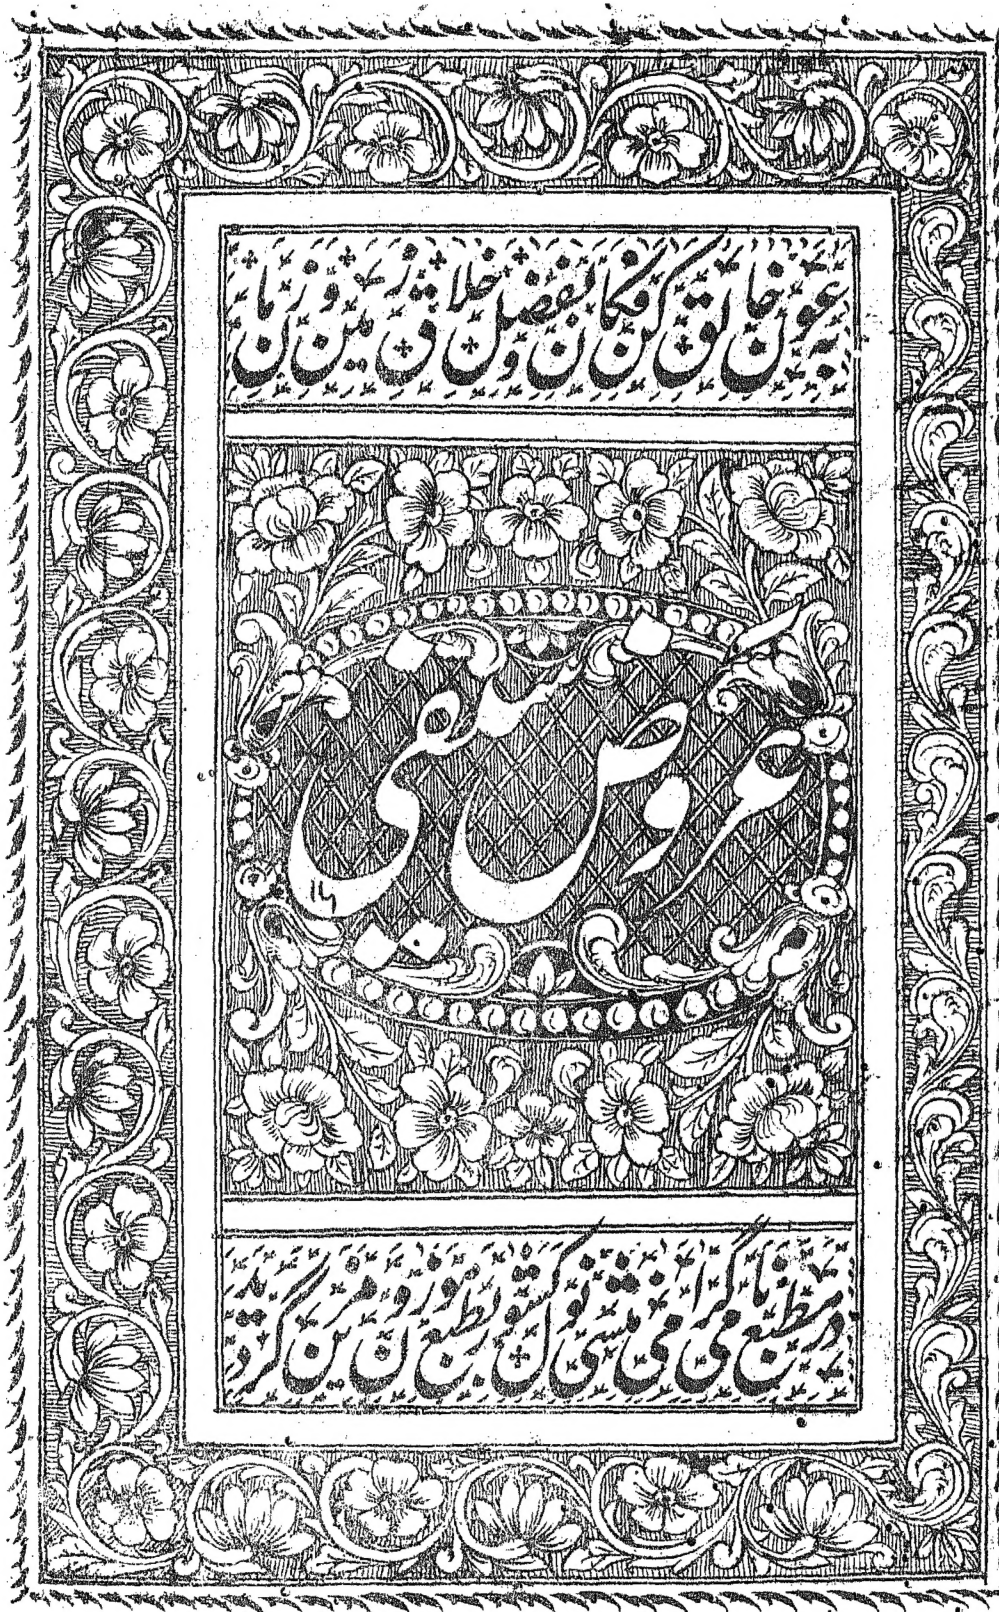 بعون خالق کن فکان و بفضل خلاق زمین و زمان
عروض سیفی
۱۲
در مطبع نامی گرامی منشی نولکشور بطبع مزین گردید